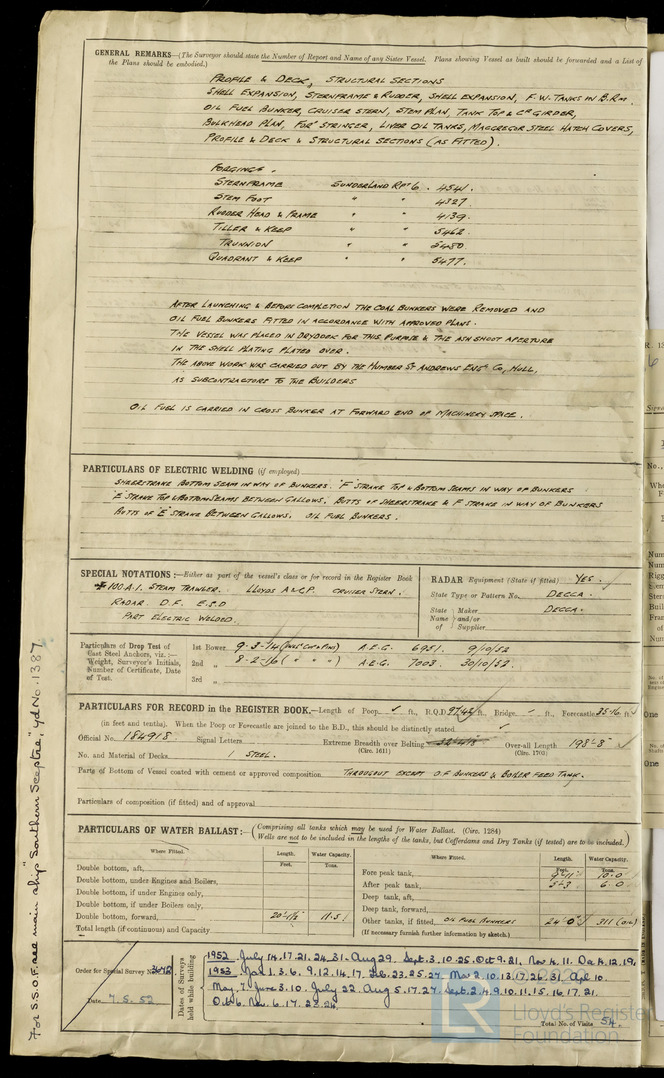 GENERAL REMARKS—(The Surveyor should state the Number of Report and Name of any Sister Vessel. Plans showing Vessel as built should be forwarded and a List of
the Plans should be embodied.)
PROFILE & DECK, STRUCTURAL SECTIONS
SHELL EXPANSION, STERNFRAME & RUDDER, SHELL EXPANSION, F.W. TANKS IN B.RM.
OIL FUEL BUNKER, CRUISER STERN, STEM PLAN, TANK TOP & CR GIRDER,
BULKHEAD PLAN, FORD STRINGER, LIVER OIL TANKS, MACGREGOR STEEL HATCH COVERS,
PROFILE & DECK & STRUCTURAL SECTIONS (AS FITTED).
FORGINGS.
STERNFRAME SUNDERLAND RPT 6. 4541.
STEM FOOT " " 4327
RUDDER HEAD & FRAME " " 4139.
TILLER & KEEP " " 5462.
TRUNNION " " 5480.
QUADRANT & KEEP " " 5477.
AFTER LAUNCHING & BEFORE COMPLETION THE COAL BUNKERS WERE REMOVED AND
OIL FUEL BUNKERS FITTED IN ACCORDANCE WITH APPROVED PLANS.
THE VESSEL WAS PLACED IN DRYDOCK FOR THIS PURPOSE & THE ASH SHOOT APERTURE
IN THE SHELL PLATING PLATED OVER.
THE ABOVE WORK WAS CARRIED OUT BY THE HUMBER ST ANDREWS ENG. CO, HULL,
AS SUBCONTRACTORS TO THE BUILDERS
OIL FUEL IS CARRIED IN CROSS BUNKER AT FORWARD END OF MACHINERY SPACE.
PARTICULARS OF ELECTRIC WELDING (if employed)
SHEERSTRAKE BOTTOM SEAM IN WAY OF BUNKERS. 'F' STRAKE TOP & BOTTOM SEAMS IN WAY OF BUNKERS
'E' STRAKE TOP & BOTTOM SEAMS BETWEEN GALLOWS. BUTTS OF SHEERSTRAKE & F STRAKE IN WAY OF BUNKERS
BUTTS OF 'E' STRAKE BETWEEN GALLOWS. OIL FUEL BUNKERS.
SPECIAL NOTATIONS:—Either as part of the vessel's class or for record in the Register Book
✠ 100 A.1. STEAM TRAWLER. LLOYDS A & C.P. CRUISER STERN.
RADAR D.F. E.S.D
PART ELECTRIC WELDED.
RADAR Equipment (State if fitted) YES.
State Type or Pattern No. DECCA.
State Name of Maker and/or Supplier DECCA.
Particulars of Drop Test of Cast Steel Anchors, viz.:— Weight, Surveyor's Initials, Number of Certificate, Date of Test.
1st Bower 9-3-14 A.E.G. 6951. 9/10/52
2nd " 8-2-16 ( " " " ) A.E.G. 7003. 30/10/52.
3rd "
PARTICULARS FOR RECORD in the REGISTER BOOK.—Length of Poop ✓ ft., R.Q.D. 97.45 ft., Bridge - ft., Forecastle 35.16 ft.
(in feet and tenths). When the Poop or Forecastle are joined to the B.D., this should be distinctly stated
Official No. 184918 Signal Letters Extreme Breadth over Belting (Circ. 1611) Over-all Length 198'-8" (Circ. 1703)
No. and Material of Decks 1 STEEL.
Parts of Bottom of Vessel coated with cement or approved composition THROUGOUT EXCEPT O.F. BUNKERS & BOILER FEED TANK.
Particulars of composition (if fitted) and of approval
PARTICULARS OF WATER BALLAST:— (Comprising all tanks which may be used for Water Ballast. (Circ. 1284)
Wells are not to be included in the lengths of the tanks, but Cofferdams and Dry Tanks (if tested) are to be included.)
Where Fitted. Length. Feet. Water Capacity. Tons.
Double bottom, aft,
Double bottom, under Engines and Boilers,
Double bottom, if under Engines only,
Double bottom, if under Boilers only,
Double bottom, forward, 20'-1½" 11.5
Total length (if continuous) and Capacity
Where Fitted. Length. Feet. Water Capacity. Tons.
Fore peak tank, 9'-11" 10.0
After peak tank, 5'-3 6.0
Deep tank, aft,
Deep tank, forward,
Other tanks, if fitted, OIL FUEL BUNKERS 24'-0" 311 (OIL)
(If necessary furnish further information by sketch.)
Order for Special Survey No. 3672
Date 7.5.52
Dates of Surveys held while building
1952 July 14.17.21.24.31- Aug 29. Sept. 3.10.25. Oct 9.21. Nov 4.11. Dec 4.12.19.
1953 Jan 1.3.6.9.12.14.17. Feb.23.25.27. Mar 2.10.13.17.26.31. Apl 10.
May. 7. June 3.10. July 22. Aug 5.17.27. Sept. 2.4.9.10.11.15.16.17.21.
Oct 6. Nov 6.17.23.24.
Total No. of Visits 54.
For S.S.O.F. see main ship "Southern Sceptre", yd No. 1387
Lloyd's Register
Foundation